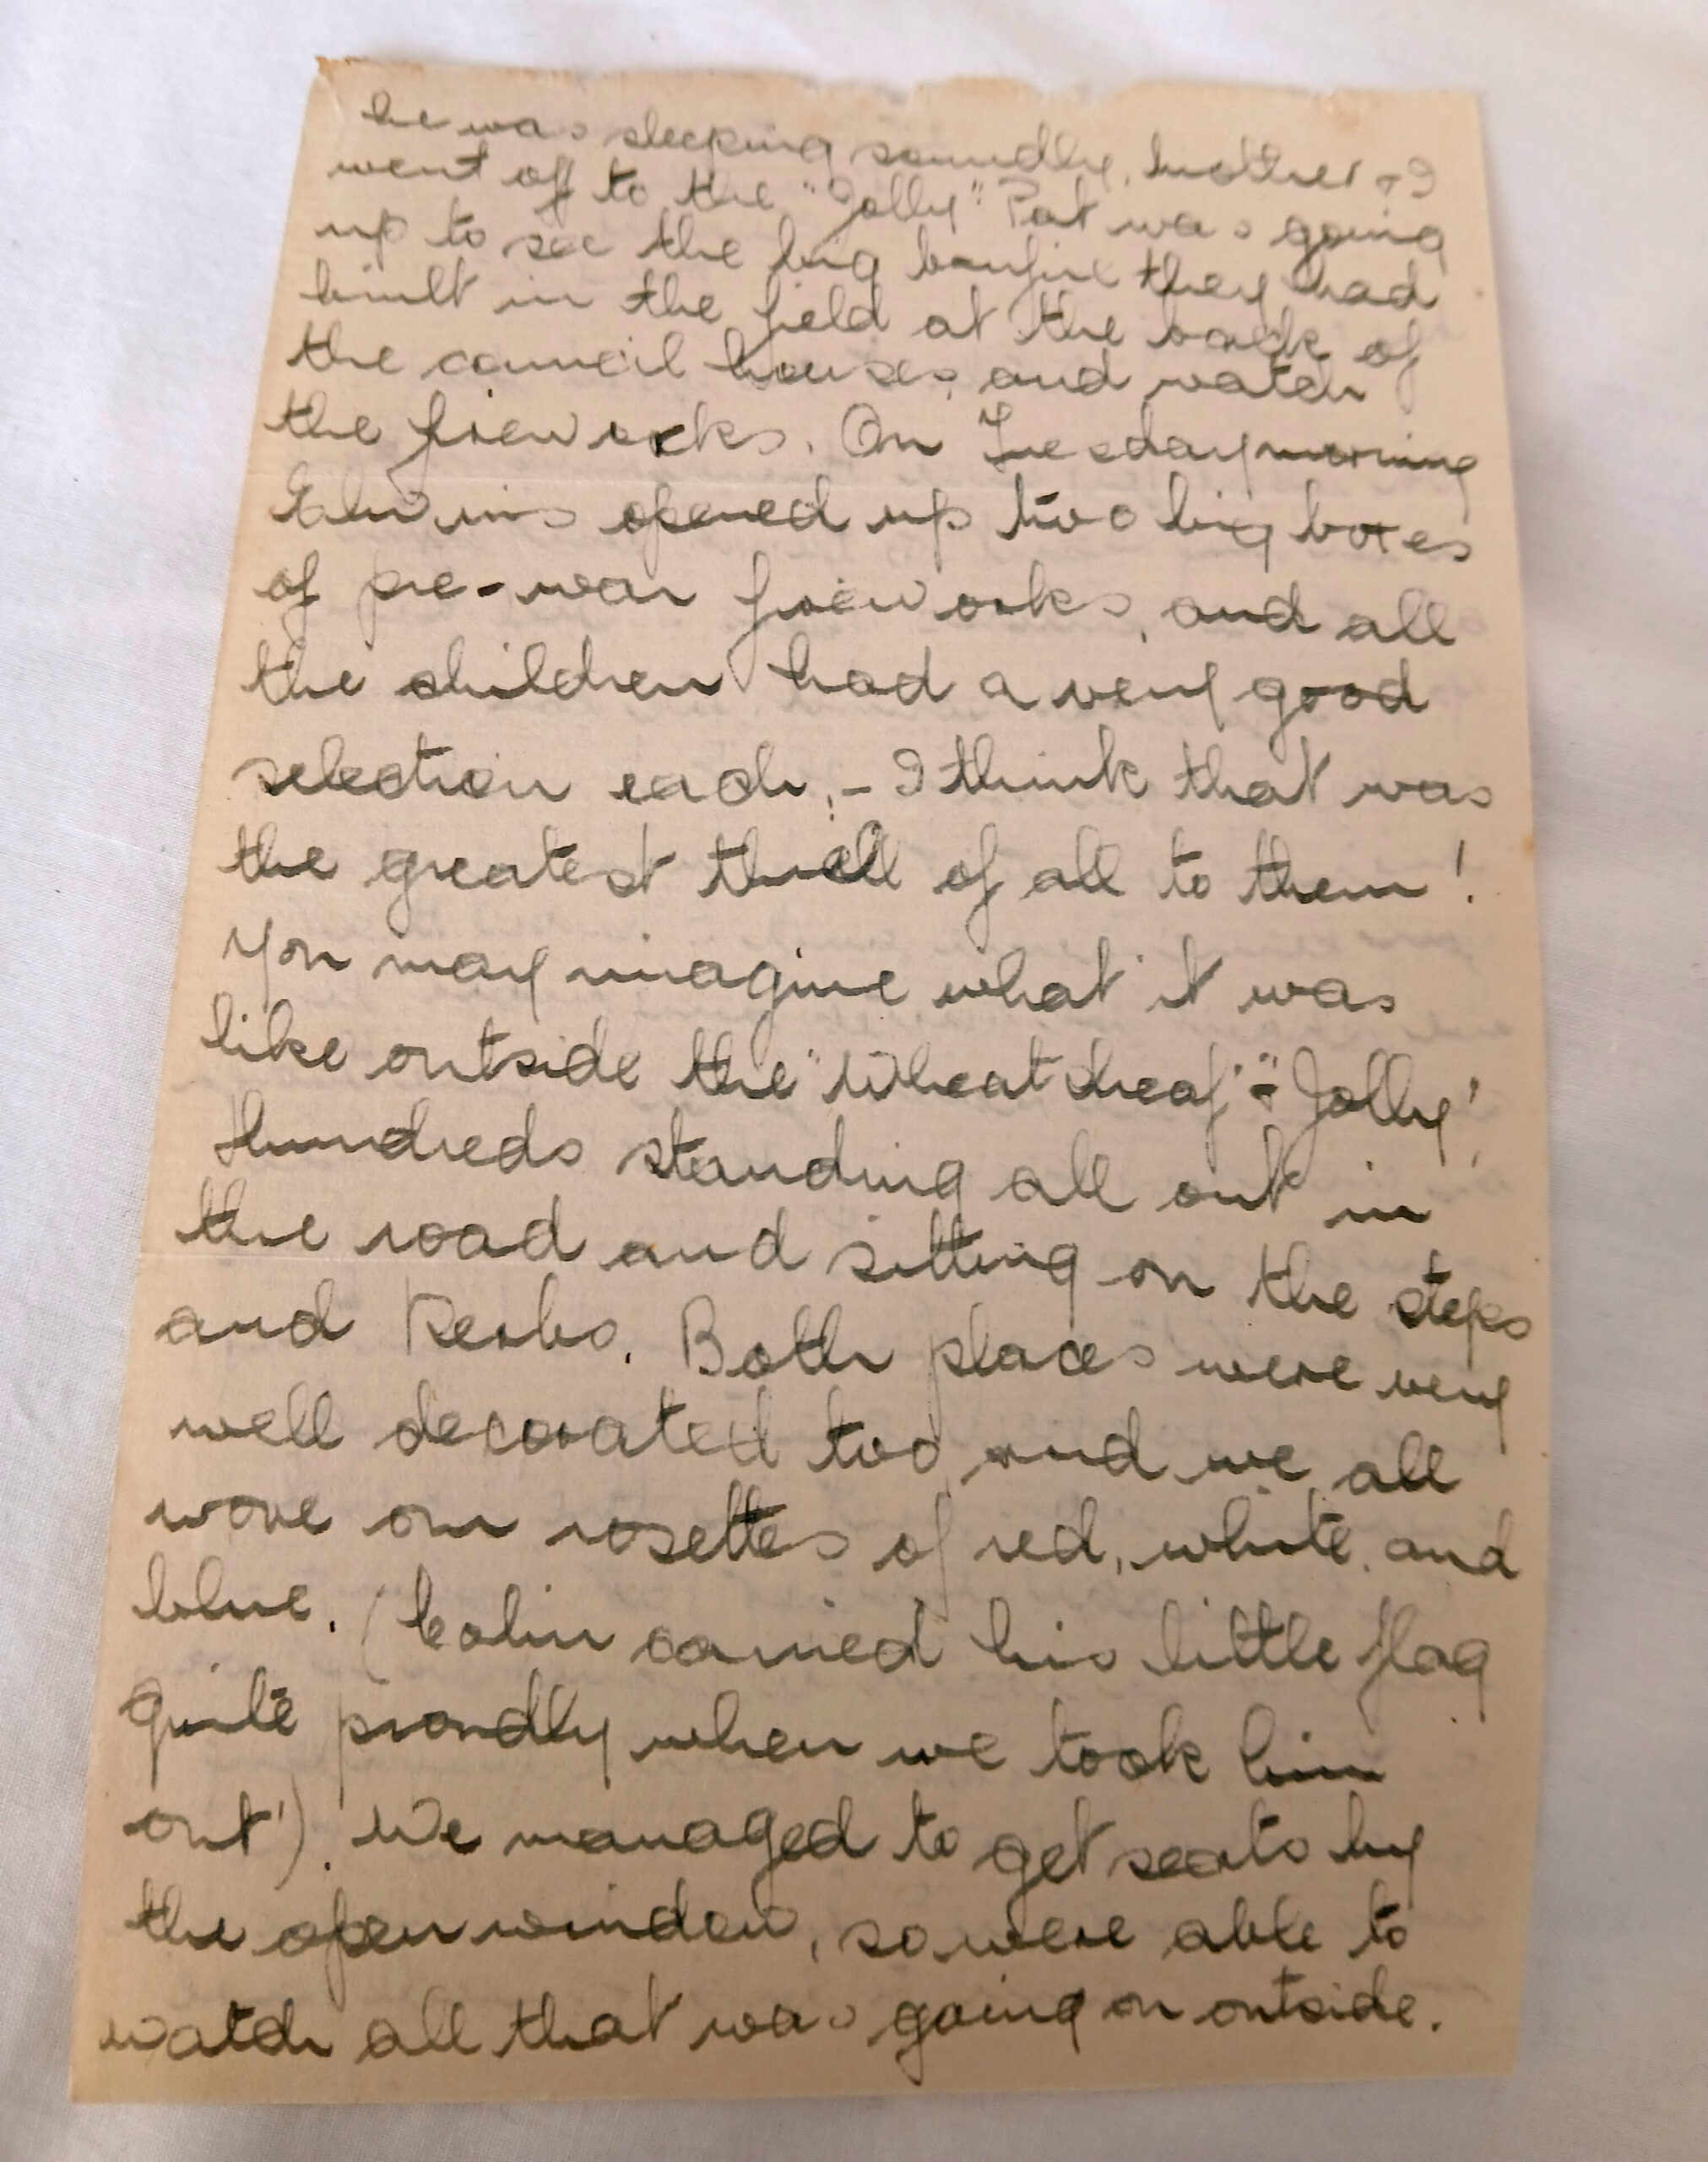 he was sleeping soundly, mother & I
went off to the "Jolly" Pat was going
up to see the big bonfire they had
built in the field at the back of
the council houses, and watch
the fireworks. On Tuesday morning
opened up two big boxes
of pre-war fireworks, and all
the children had a very good
selection each, - I think that was
the greatest thrill of all to them!
You may imagine what it was
like outside the "Wheatsheaf" & "Jolly",
Hundreds standing all out in
the road and sitting on the steps
and Kerbs. Both places were very
well decorated too, and we all
wore our rosettes of red, white, and
blue. (Colin carried his little flag
quite proudly when we took him
out!). We managed to get seats by
the open window, so were able to
watch all that was going on outside.